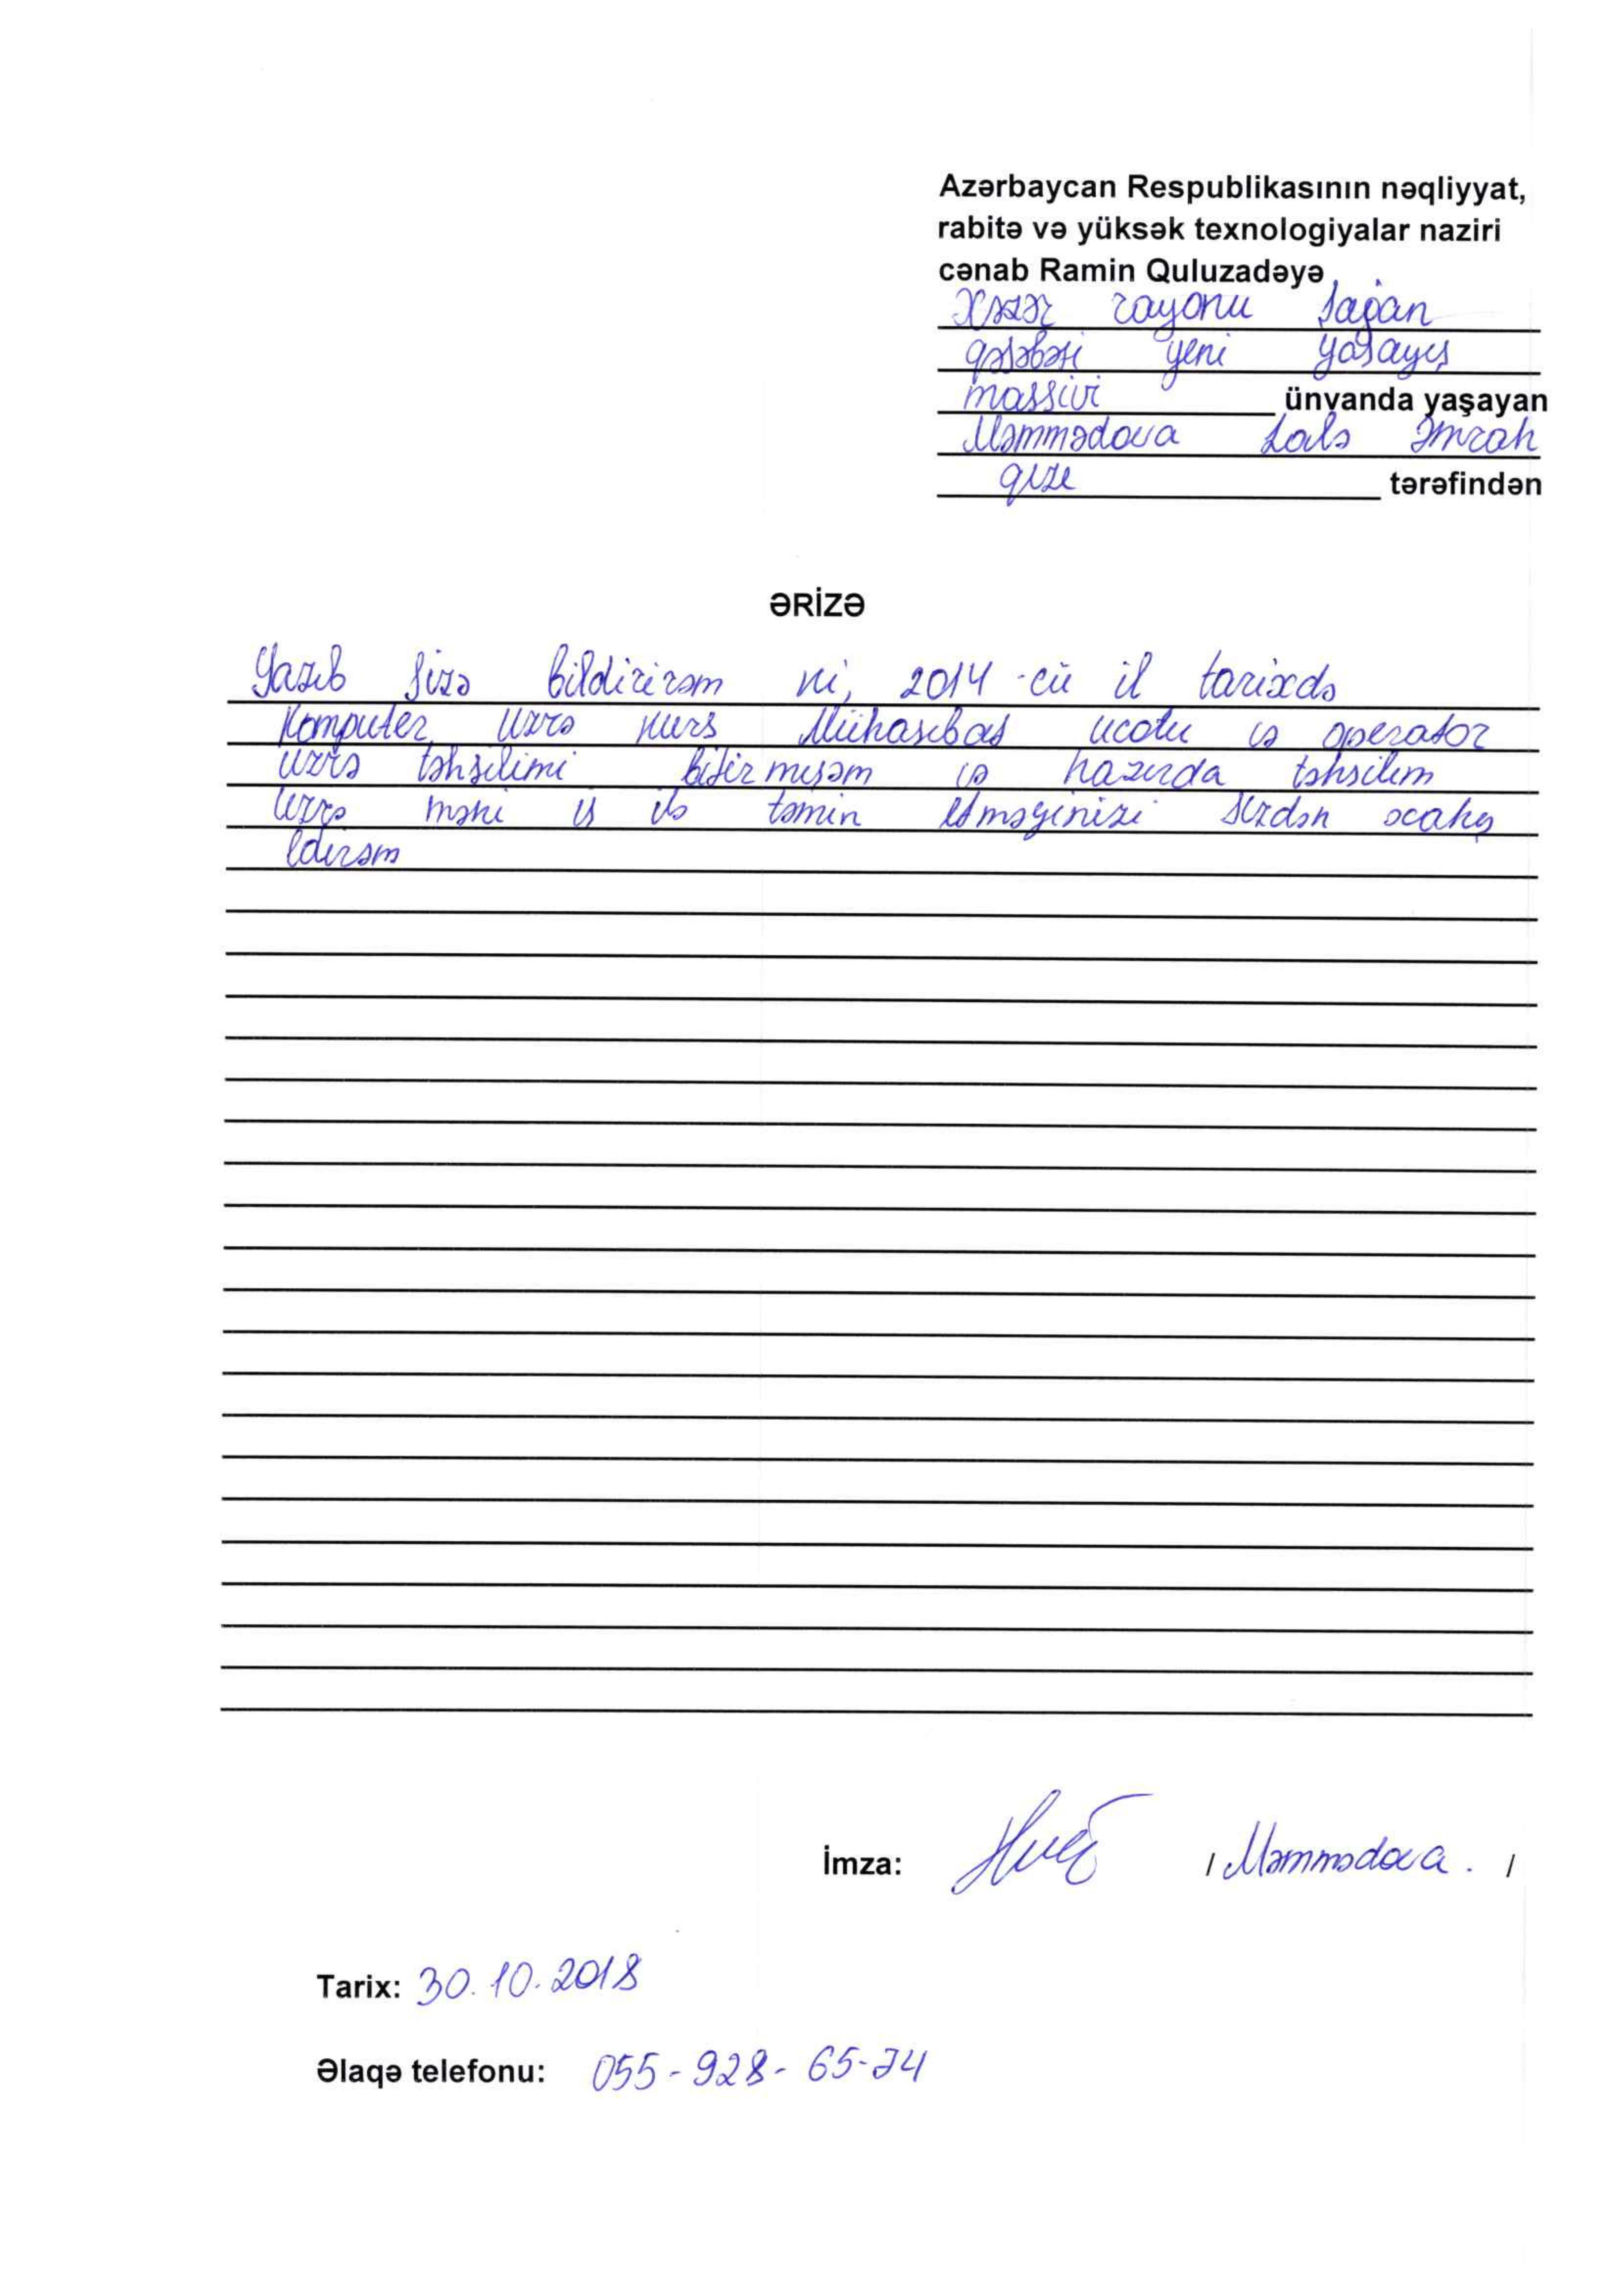 Azərbaycan Respublikasının nəqliyyat,
rabitə və yüksək texnologiyalar naziri
cənab Ramin Quluzadəyə
Xəzər rayonu Şağan
qəsəbəsi yeni yaşayış
massivi ünvanda yaşayan
Məmmədova Lalə Əmrah
qızı tərəfindən
ƏRİZƏ
Yazıb Sizə bildirirəm ki, 2014-cü il tarixdə
Komputer uzrə kurs Mühasibat ucotu və operator
uzrə təhsilimi bitirmişəm və hazırda təhsilim
uzrə məni iş ilə təmin etməyinizi sizdən xcahiş
edirəm
İmza: / Məmmədova. /
Tarix: 30.10.2018
Əlaqə telefonu: 055-928-65-74